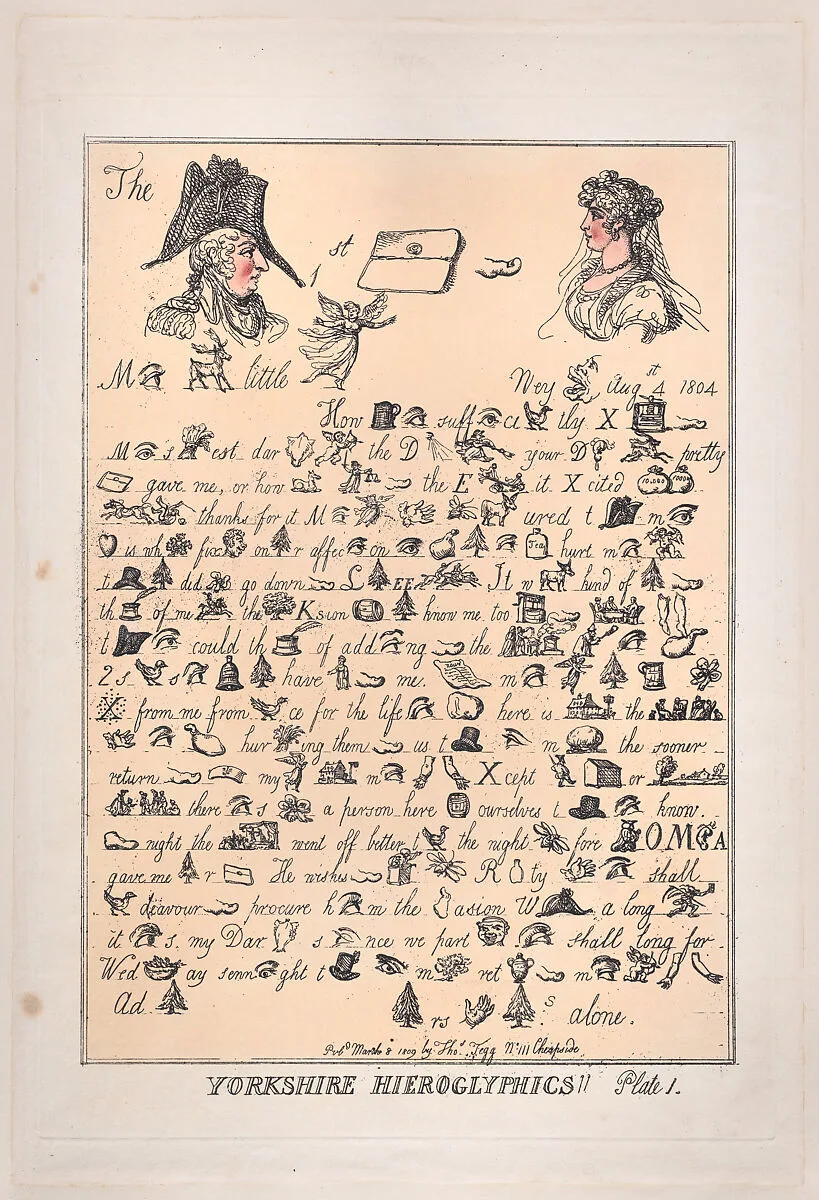 The
1st
M little
Wey Augst 4 1804
How suff ce tly X
M s est dar the D your D pretty
gave me, or how the E it Xcited 10,000
thanks for it M ured t m
is wh fix on r affec on Tea hurt m
t did go down L EE It w kind of
th of me the Ksion know me too
t could th of add ng the
2s s have me. m
X from me from ce for the life here is the
hur ing them us t m the sooner
return my m Xcept or
there s a person here ourselves t know
night the went off better t the night fore OMPA
gave me r He wishes R ty shall
deavour procure h m the asion W a long
it s, my Dar s nce we part shall long for
Wed ay senn ght t m ret m
Ad rs s alone.
Pubd March 8 1809 by Thos Tegg No 111 Cheapside
YORKSHIRE HIEROGLYPHICS!! Plate 1.